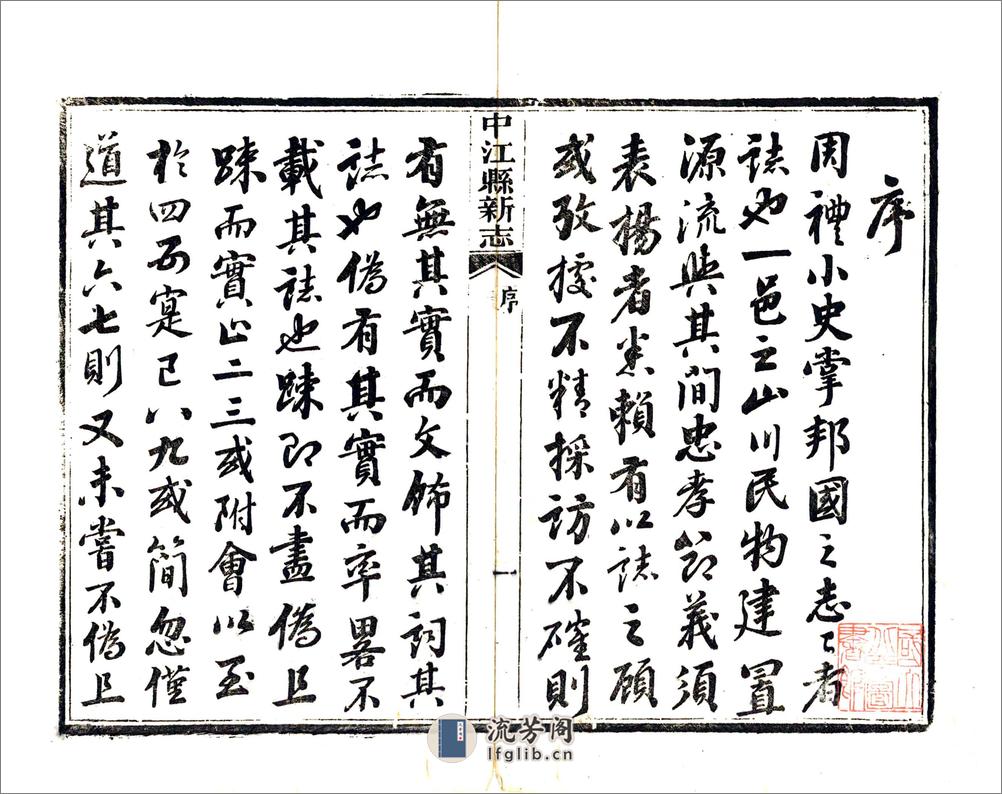 序
周禮小史掌邦國之志〻者
誌也一邑之山川民物建置
源流與其間忠孝節義須
表揚者悉賴有以誌之顧
或攷據不精採訪不確則
中江縣新志
序
一
有無其實而文飾其詞其
誌也偽有其實而率畧不
載其誌也踈即不盡偽且
踈而實止二三或附會以至
於四五寔已八九或簡忽僅
道其六七則又未嘗不偽且
流芳阁
lfglib.cn